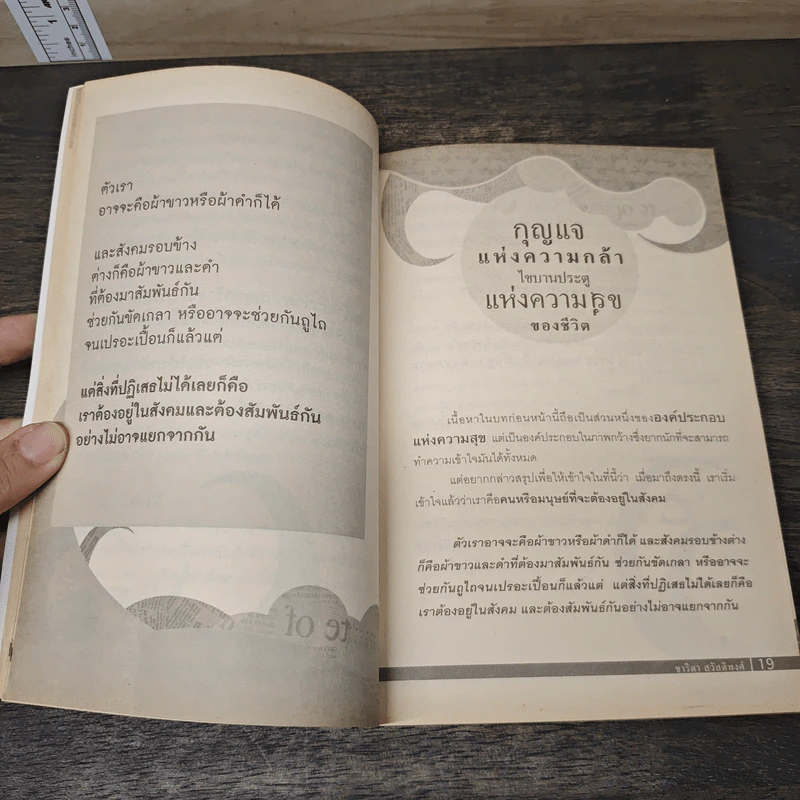 ตัวเรา
อาจจะคือผ้าขาวหรือผ้าดำก็ได้
และสังคมรอบข้าง
ต่างก็คือผ้าขาวและดำ
ที่ต้องมาสัมพันธ์กัน
ช่วยกันขัดเกลา หรืออาจจะช่วยกันถูไถ
จนเปรอะเปื้อนก็แล้วแต่
แต่สิ่งที่ปฏิเสธไม่ได้เลยก็คือ
เราต้องอยู่ในสังคมและต้องสัมพันธ์กัน
อย่างไม่อาจแยกจากกัน
te of
กุญแจ
แห่งความกล้า
ไขบานประตู
แห่งความสุข
ของชีวิต
เนื้อหาในบทก่อนหน้านี้ถือเป็นส่วนหนึ่งขององค์ประกอบ
แห่งความสุข แต่เป็นองค์ประกอบในภาพกว้างซึ่งยากนักที่จะสามารถ
ทำความเข้าใจมันได้ทั้งหมด
แต่อยากกล่าวสรุปเพื่อให้เข้าใจในที่นี้ว่า เมื่อมาถึงตรงนี้ เราเริ่ม
เข้าใจแล้วว่าเราคือคนหรือมนุษย์ที่จะต้องอยู่ในสังคม
ตัวเราอาจจะคือผ้าขาวหรือผ้าดำก็ได้ และสังคมรอบข้างต่าง
ก็คือผ้าขาวและดำที่ต้องมาสัมพันธ์กัน ช่วยกันขัดเกลา หรืออาจจะ
ช่วยกันถูไถจนเปรอะเปื้อนก็แล้วแต่ แต่สิ่งที่ปฏิเสธไม่ได้เลยก็คือ
เราต้องอยู่ในสังคม และต้องสัมพันธ์กันอย่างไม่อาจแยกจากกัน
ชาริดา สวัสดิพงศ์ | 19